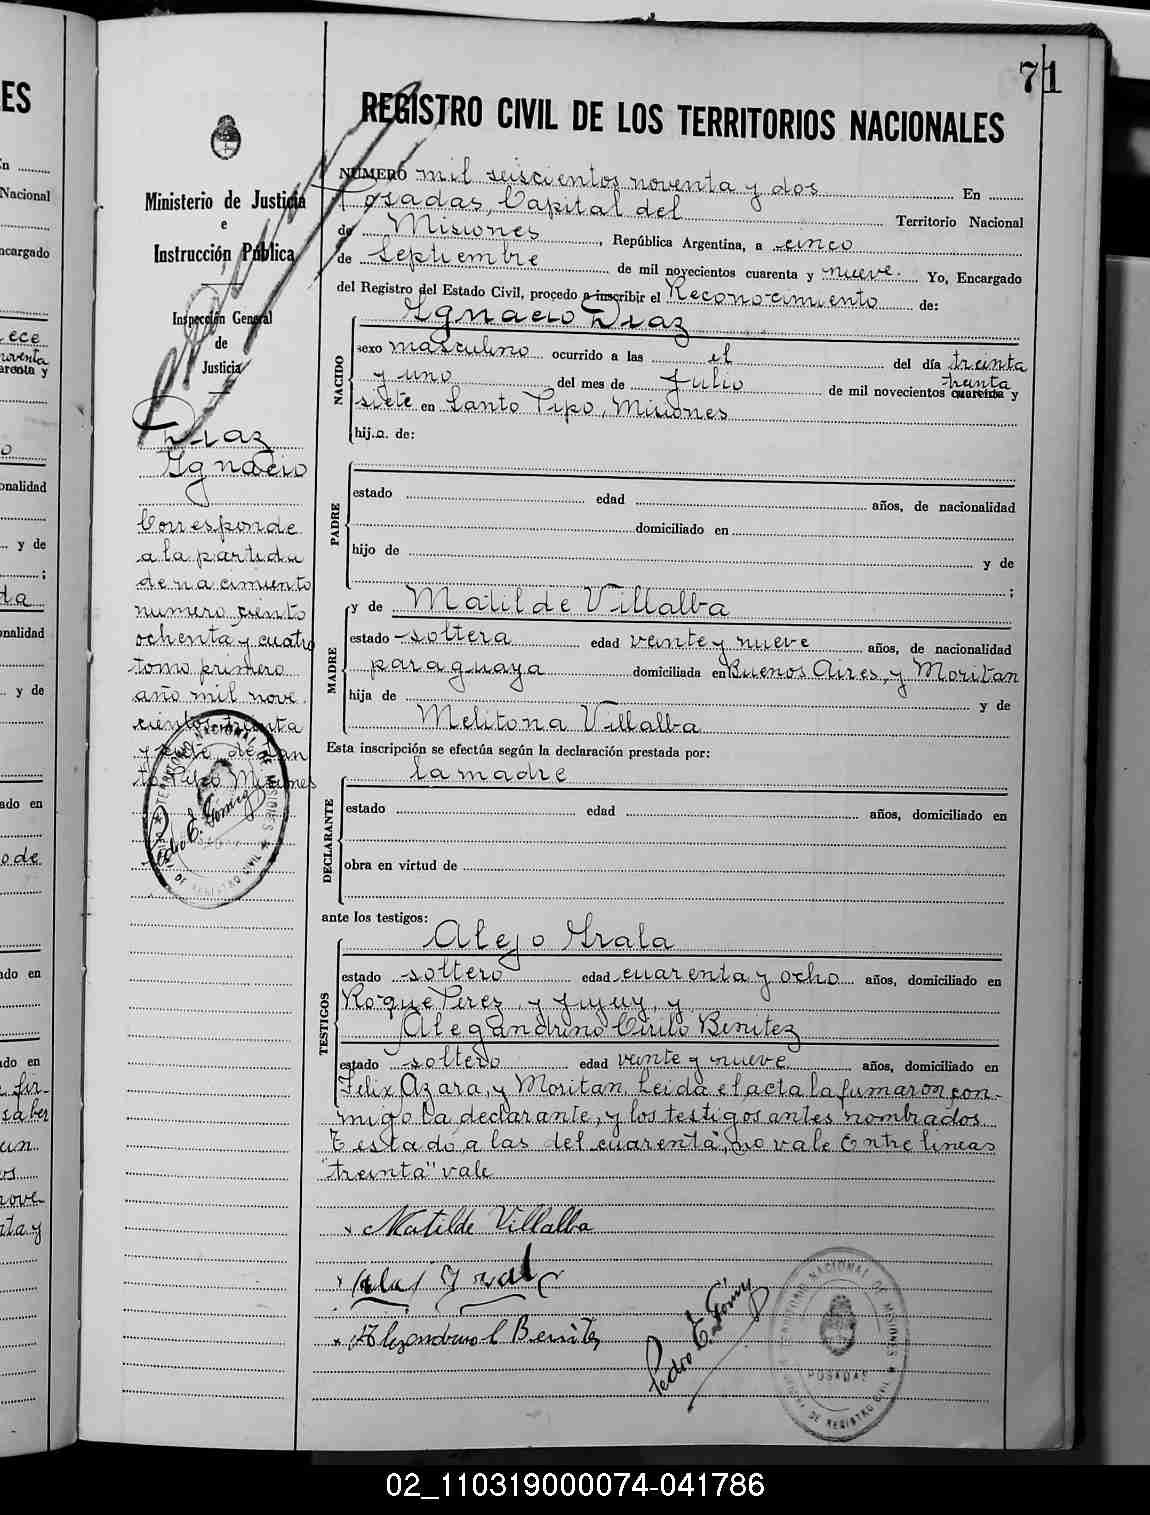 71
REGISTRO CIVIL DE LOS TERRITORIOS NACIONALES
Ministerio de Justicia
e
Instrucción Pública
Inspección General
de
Justicia
Diaz
Ignacio
Corresponde
a la partida
de nacimiento
numero ciento
ochenta y cuatro
tomo primero
año mil nove
cientos treinta
y siete de San
to Pipo Misiones
Pedro E. Gómez
NUMERO mil seiscientos noventa y dos En
Posadas, Capital del Territorio Nacional
de Misiones, República Argentina, a cinco
de Septiembre de mil novecientos cuarenta y nueve. Yo, Encargado
del Registro del Estado Civil, procedo a inscribir el Reconocimiento de:
Ignacio Diaz
NACIDO
sexo masculino ocurrido a las el del día treinta
y uno del mes de Julio de mil novecientos cuarenta y
treinta
siete en Santo Pipo, Misiones
hij.o. de:
PADRE
estado edad años, de nacionalidad
domiciliado en
hijo de y de
;
MADRE
y de Matilde Villalba
estado soltera edad veinte y nueve años, de nacionalidad
paraguaya domiciliada en Buenos Aires, y Moritan
hija de y de
Melitona Villalba
Esta inscripción se efectúa según la declaración prestada por:
la madre
DECLARANTE
estado edad años, domiciliado en
obra en virtud de
ante los testigos:
TESTIGOS
Alejo Grala
estado soltero edad cuarenta y ocho años, domiciliado en
Roque Perez y Jujuy, y
Alegandrino Cirilo Benitez
estado soltero edad veinte y nueve años, domiciliado en
Felix Azara, y Moritan. Leida el acta la fumaron con-
migo la declarante, y los testigos antes nombrados
Testado a las del cuarenta, no vale Entre lineas
"treinta" vale
x Matilde Villalba
Pedro E. Gómez
TERRITORIO NACIONAL DE MISIONES
POSADAS
OFICINA DE REGISTRO CIVIL
02_110319000074-041786